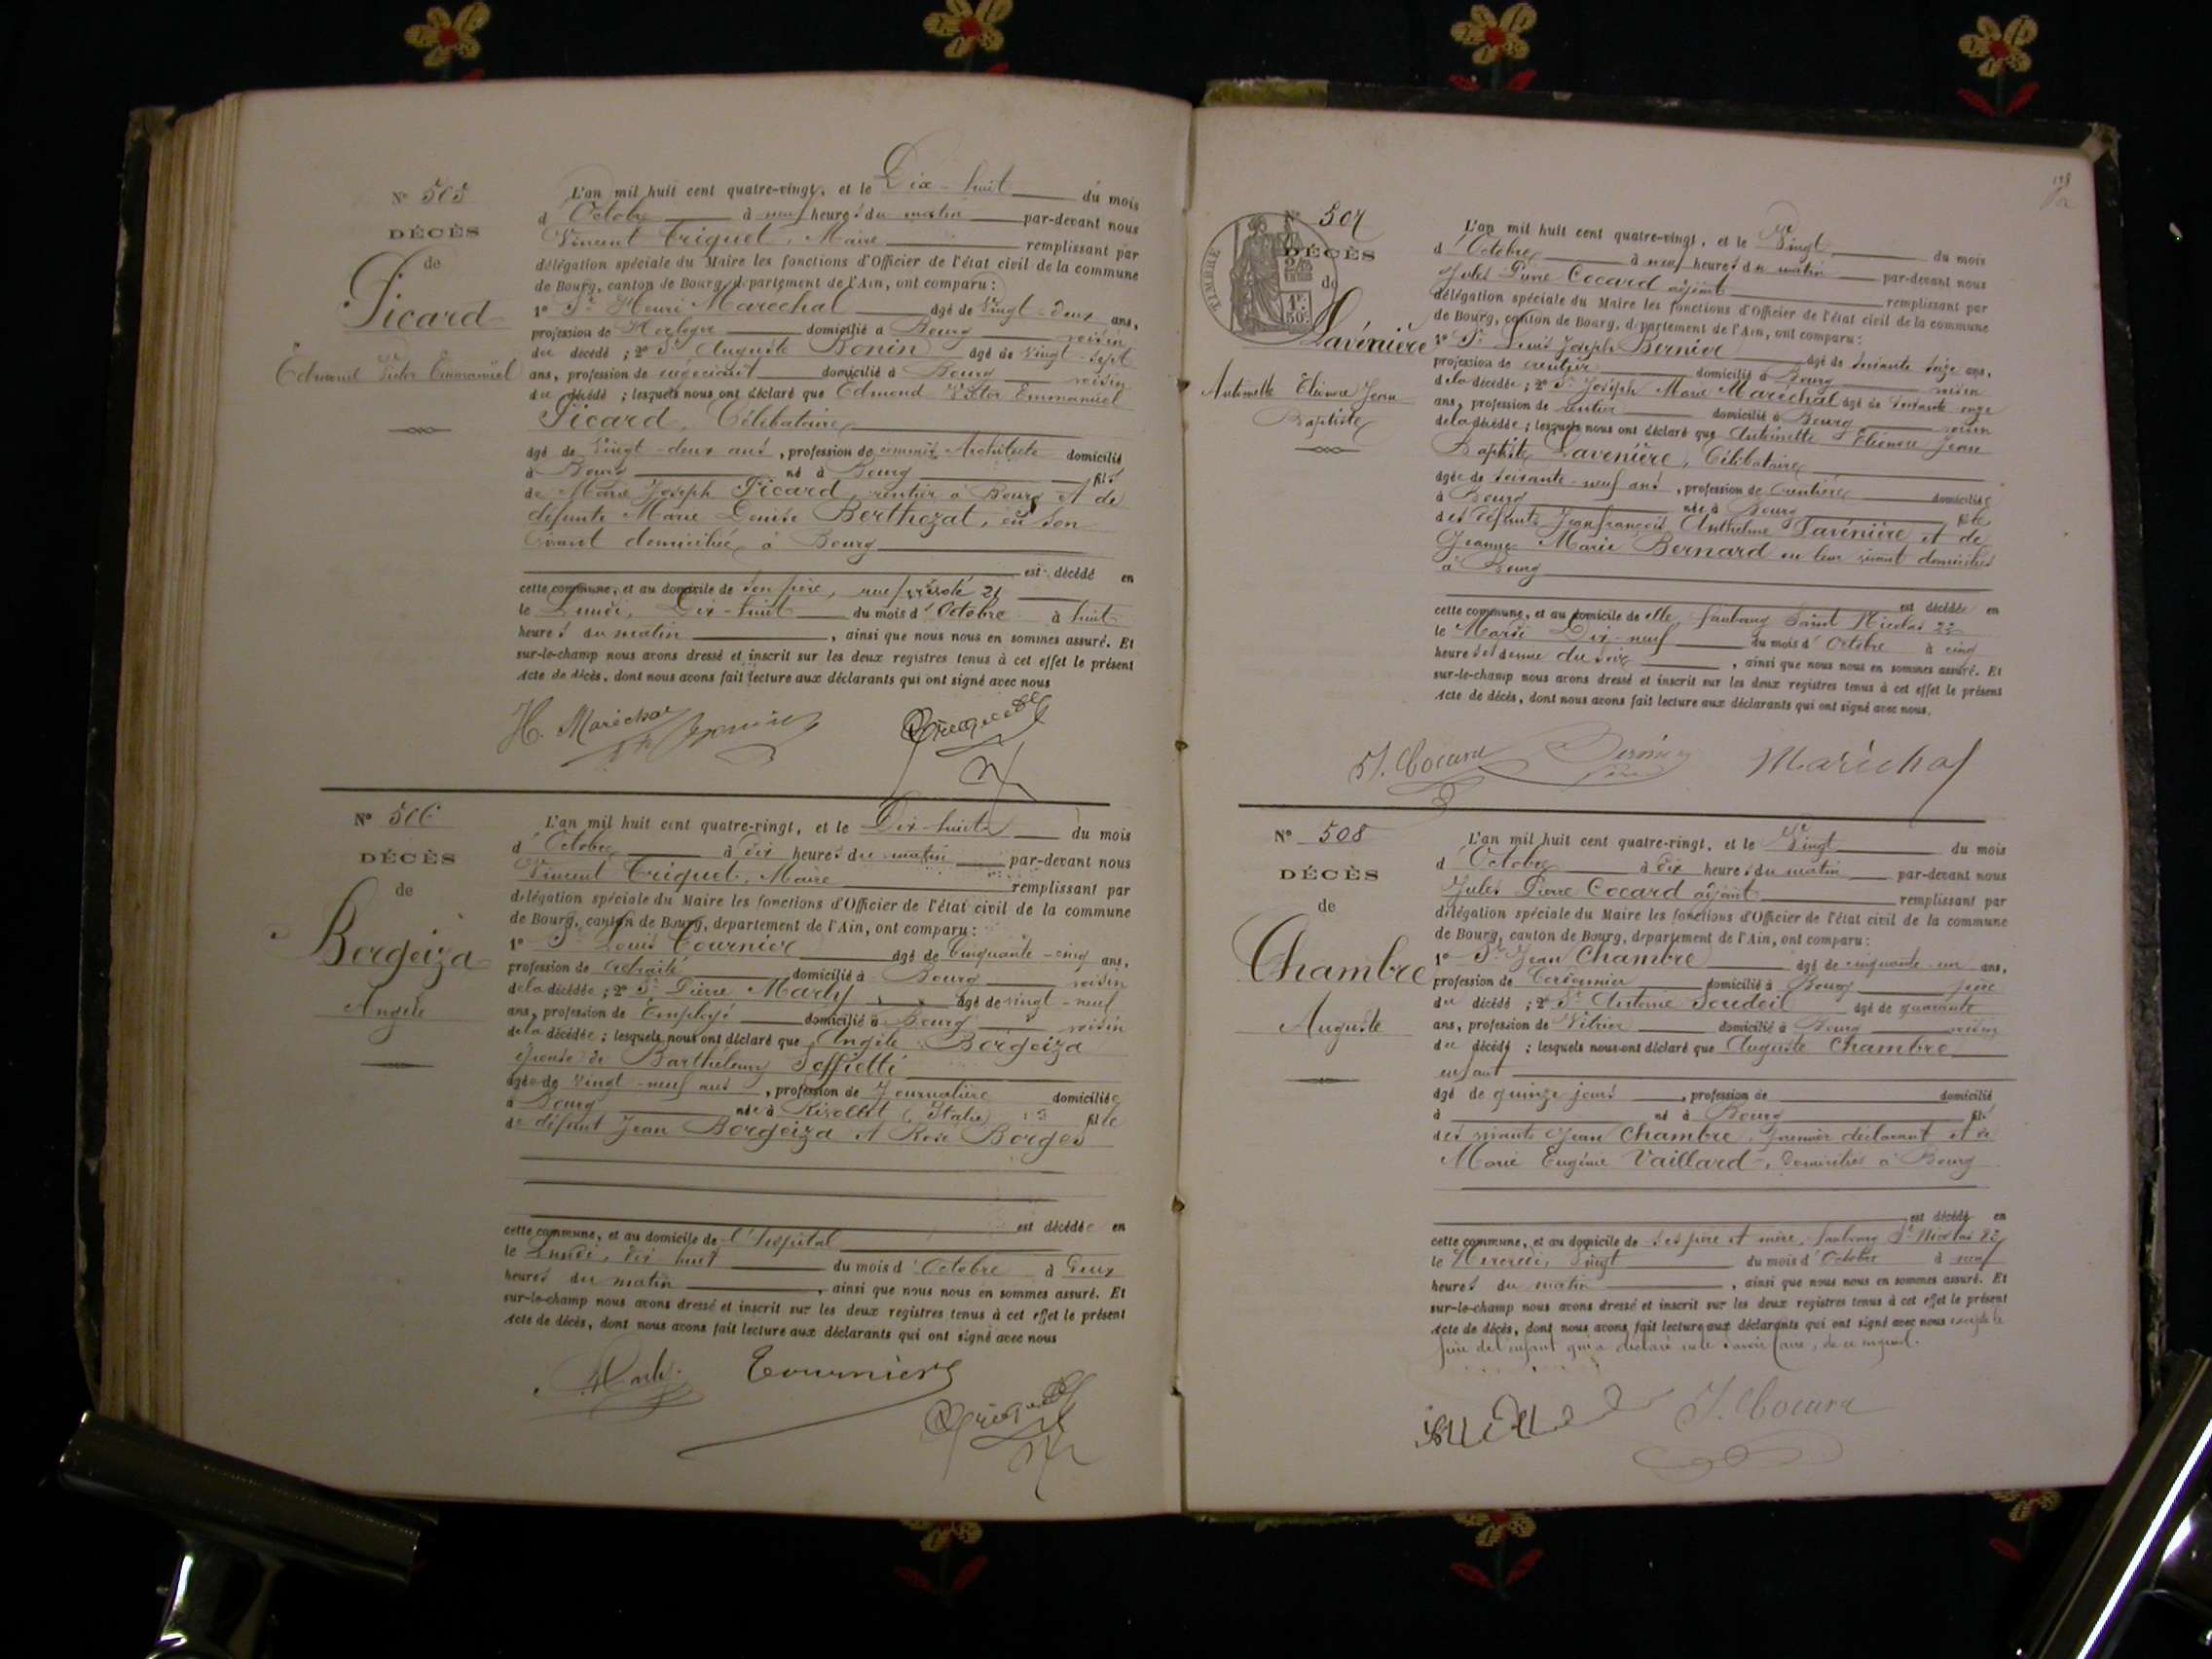 N° 505
DÉCÈS
de
Picard
Edmond Victor Emmanuel
L'an mil huit cent quatre-vingt, et le Dix-huit du mois
d'Octobre à neuf heures du matin par-devant nous
Vincent Triquet, Maire remplissant par
délégation spéciale du Maire les fonctions d'Officier de l'état civil de la commune
de Bourg, canton de Bourg, département de l'Ain, ont comparu :
1° Sr Henri Maréchal âgé de Vingt-deux ans,
profession de Horloger domicilié à Bourg voisin
du décédé ; 2° Sr Auguste Bonin âgé de vingt-sept
ans, profession de négociant domicilié à Bourg voisin
du décédé ; lesquels nous ont déclaré que Edmond Victor Emmanuel
Picard, Célibataire
âgé de Vingt-deux ans, profession de commis Architecte domicilié
à Bourg né à Bourg fils
de Marie Joseph Picard, rentier à Bourg et de
défunte Marie Louise Berthozat, en son
vivant domiciliée à Bourg
est décédé en
cette commune, et au domicile de son père, rue 21
le Lundi, Dix-huit du mois d'Octobre à huit
heures du matin, ainsi que nous nous en sommes assuré. Et
sur-le-champ nous avons dressé et inscrit sur les deux registres tenus à cet effet le présent
acte de décès, dont nous avons fait lecture aux déclarants qui ont signé avec nous
H. Maréchal
N° 506
DÉCÈS
de
Borgeiza
Angèle
L'an mil huit cent quatre-vingt, et le Dix-huit du mois
d'Octobre à dix heures du matin par-devant nous
Vincent Triquet, Maire remplissant par
délégation spéciale du Maire les fonctions d'Officier de l'état civil de la commune
de Bourg, canton de Bourg, département de l'Ain, ont comparu :
1° Sr Louis Tournier âgé de Cinquante-cinq ans,
profession de retraité domicilié à Bourg voisin
de la décédée ; 2° Sr Pierre Mardy âgé de vingt-neuf
ans, profession de Employé domicilié à Bourg voisin
de la décédée ; lesquels nous ont déclaré que Angèle Borgeiza
épouse de Barthélemy Soffietti
âgée de vingt-neuf ans, profession de Journalière domiciliée
à Bourg née à (Italie) fille
de défunt Jean Borgeiza et Rose Borges
est décédée en
cette commune, et au domicile de l'hospital
le Lundi, dix huit du mois d'Octobre à Deux
heures du matin, ainsi que nous nous en sommes assuré. Et
sur-le-champ nous avons dressé et inscrit sur les deux registres tenus à cet effet le présent
acte de décès, dont nous avons fait lecture aux déclarants qui ont signé avec nous
Tournier
TIMBRE
1F.50c
N° 507
DÉCÈS
de
Lavénière
Antoinette Eléonore Jean
Baptiste
L'an mil huit cent quatre-vingt, et le Vingt du mois
d'Octobre à neuf heures du matin par-devant nous
Jules Pierre Cocard adjoint remplissant par
délégation spéciale du Maire les fonctions d'Officier de l'état civil de la commune
de Bourg, canton de Bourg, département de l'Ain, ont comparu :
1° Sr Louis Joseph Bernier âgé de soixante seize ans,
profession de rentier domicilié à Bourg voisin
de la décédée ; 2° Sr Joseph Marie Maréchal âgé de soixante onze
ans, profession de rentier domicilié à Bourg voisin
de la décédée ; lesquels nous ont déclaré que Antoinette Eléonore Jean
Baptiste Lavénière, Célibataire
âgée de soixante-neuf ans, profession de Rentière domiciliée
à Bourg née à Bourg fille
des défunts Jean François Anthelme Lavénière et de
Jeanne Marie Bernard en leur vivant domiciliés
à Bourg
est décédée en
cette commune, et au domicile de elle, faubourg Saint Nicolas 22
le Mardi Dix-neuf du mois d'Octobre à cinq
heures et demie du soir, ainsi que nous nous en sommes assuré. Et
sur-le-champ nous avons dressé et inscrit sur les deux registres tenus à cet effet le présent
acte de décès, dont nous avons fait lecture aux déclarants qui ont signé avec nous.
J. Cocard Bernier Maréchal
N° 508
DÉCÈS
de
Chambre
Auguste
L'an mil huit cent quatre-vingt, et le Vingt du mois
d'Octobre à dix heures du matin par-devant nous
Jules Pierre Cocard adjoint remplissant par
délégation spéciale du Maire les fonctions d'Officier de l'état civil de la commune
de Bourg, canton de Bourg, département de l'Ain, ont comparu :
1° Sr Jean Chambre âgé de cinquante-un ans,
profession de Cordonnier domicilié à Bourg père
du décédé ; 2° Sr Antoine Soudeil âgé de quarante
ans, profession de Vitrier domicilié à Bourg voisin
du décédé ; lesquels nous ont déclaré que Auguste Chambre
enfant
âgé de quinze jours, profession de domicilié
à né à Bourg fils
des vivants Jean Chambre, premier déclarant et de
Marie Eugénie Vaillard, domiciliés à Bourg
est décédé en
cette commune, et au domicile de ses père et mère, faubourg St Nicolas
le Mercredi, Vingt du mois d'Octobre à neuf
heures du matin, ainsi que nous nous en sommes assuré. Et
sur-le-champ nous avons dressé et inscrit sur les deux registres tenus à cet effet le présent
acte de décès, dont nous avons fait lecture aux déclarants qui ont signé avec nous excepté le
père de l'enfant qui a déclaré ne le savoir faire, de ce requis.
J. Cocard